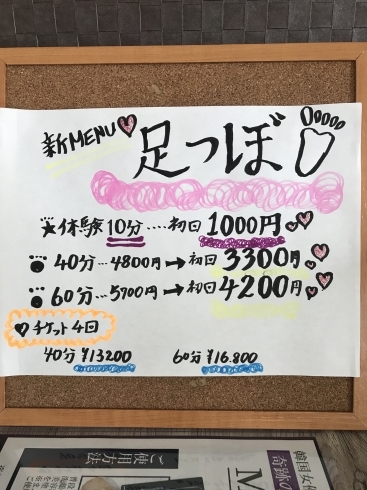 新MENU♥
足つぼ
★体験10分....初回1000円
●40分...4800円→初回3300円
●60分...5700円→初回4200円
♡チケット4回
40分¥13200 60分¥16.800
ご使用方法
韓国女
M